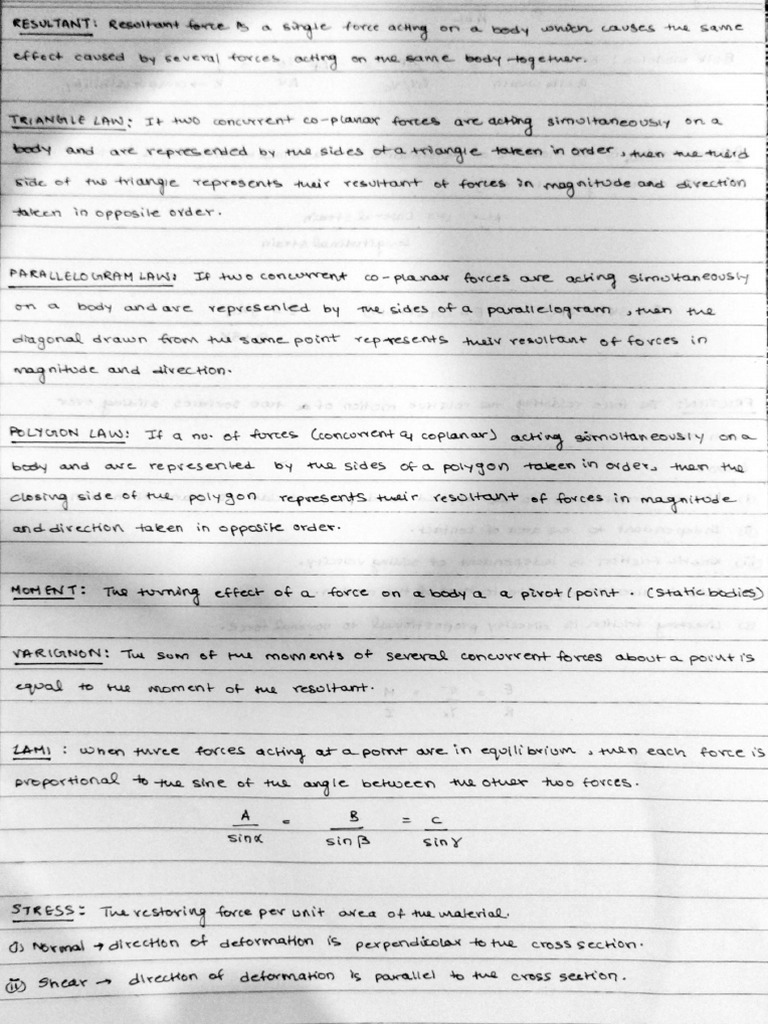 RESULTANT: Resultant force is a single force acting on a body which causes the same
effect caused by several forces acting on the same body together.
TRIANGLE LAW: If two concurrent co-planar forces are acting simultaneously on a
body and are represended by the sides of a triangle taken in order, then the third
side of the triangle represents their resultant of forces in magnitude and direction
taken in opposite order.
PARALLELOGRAM LAW: If two concurrent co-planar forces are acting simultaneously
on a body and are represented by the sides of a parallelogram, then the
diagonal drawn from the same point represents their resultant of forces in
magnitude and direction.
POLYGON LAW: If a no. of forces (concurrent & coplanar) acting simultaneously on a
body and are represented by the sides of a polygon taken in order, then the
closing side of the polygon represents their resultant of forces in magnitude
and direction taken in opposite order.
MOMENT: The turning effect of a force on a body a a pivot/point. (static bodies)
VARIGNON: The sum of the moments of several concurrent forces about a point is
equal to the moment of the resultant.
LAMI: When three forces acting at a point are in equilibrium, then each force is
proportional to the sine of the angle between the other two forces.
A = B = C
sinα sinβ sinγ
STRESS: The restoring force per unit area of the material.
(i) Normal → direction of deformation is perpendicular to the cross section.
(ii) Shear → direction of deformation is parallel to the cross section.